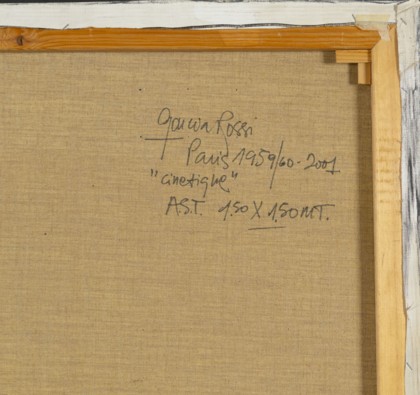 Garcia Rossi
Paris 1959/60-2001
"cinetique"
A.S.T. 1.50 X 1.50 MT.